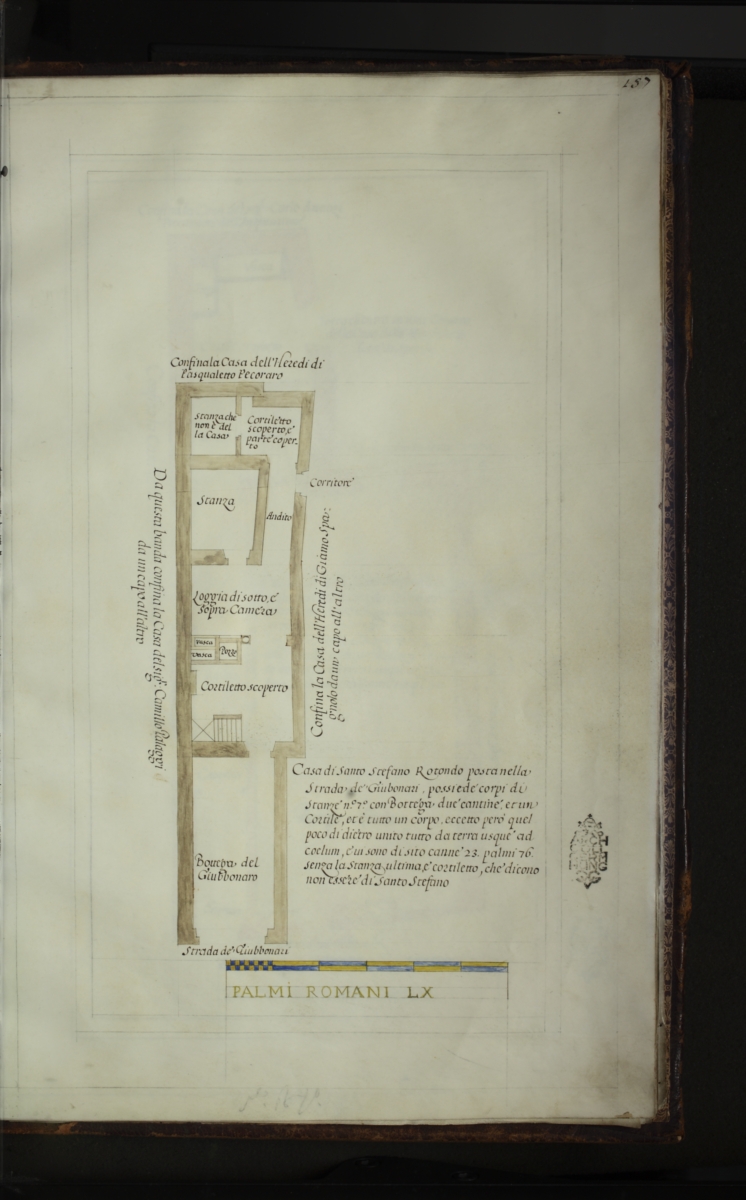 157
Confina la Casa dell'Heredi di
Pasqualetto Pecoraro
Stanza che
non è del
la Casa
Cortiletto
scoperto, è
parte coper-
to
Corritore
Stanza
Andito
Loggia di sotto, è
sopra Camera
Vasca
Vasca
Pozzo
Cortiletto scoperto
Da questa banda confina la Casa del sigr. Camillo
da un capo all'altro
Confina la Casa dell'Heredi di Giàmo Spa-
gnolo da un capo all'altro
Casa di Santo Stefano Rotondo posta nella
Strada de Giubonari, possiede corpi di
Stanze n.º 7.º con Bottega due cantine, et un
Cortile, et è tutto un corpo, eccetto però quel
poco di dietro unito tutto da terra usque ad
coelum, è ui sono di sito canne 23. palmi 76.
senza la Stanza ultima, è cortiletto, che dicono
non essere di Santo Stefano
Bottega del
Giubbonaro
Strada de Giubbonari
PALMI ROMANI LX